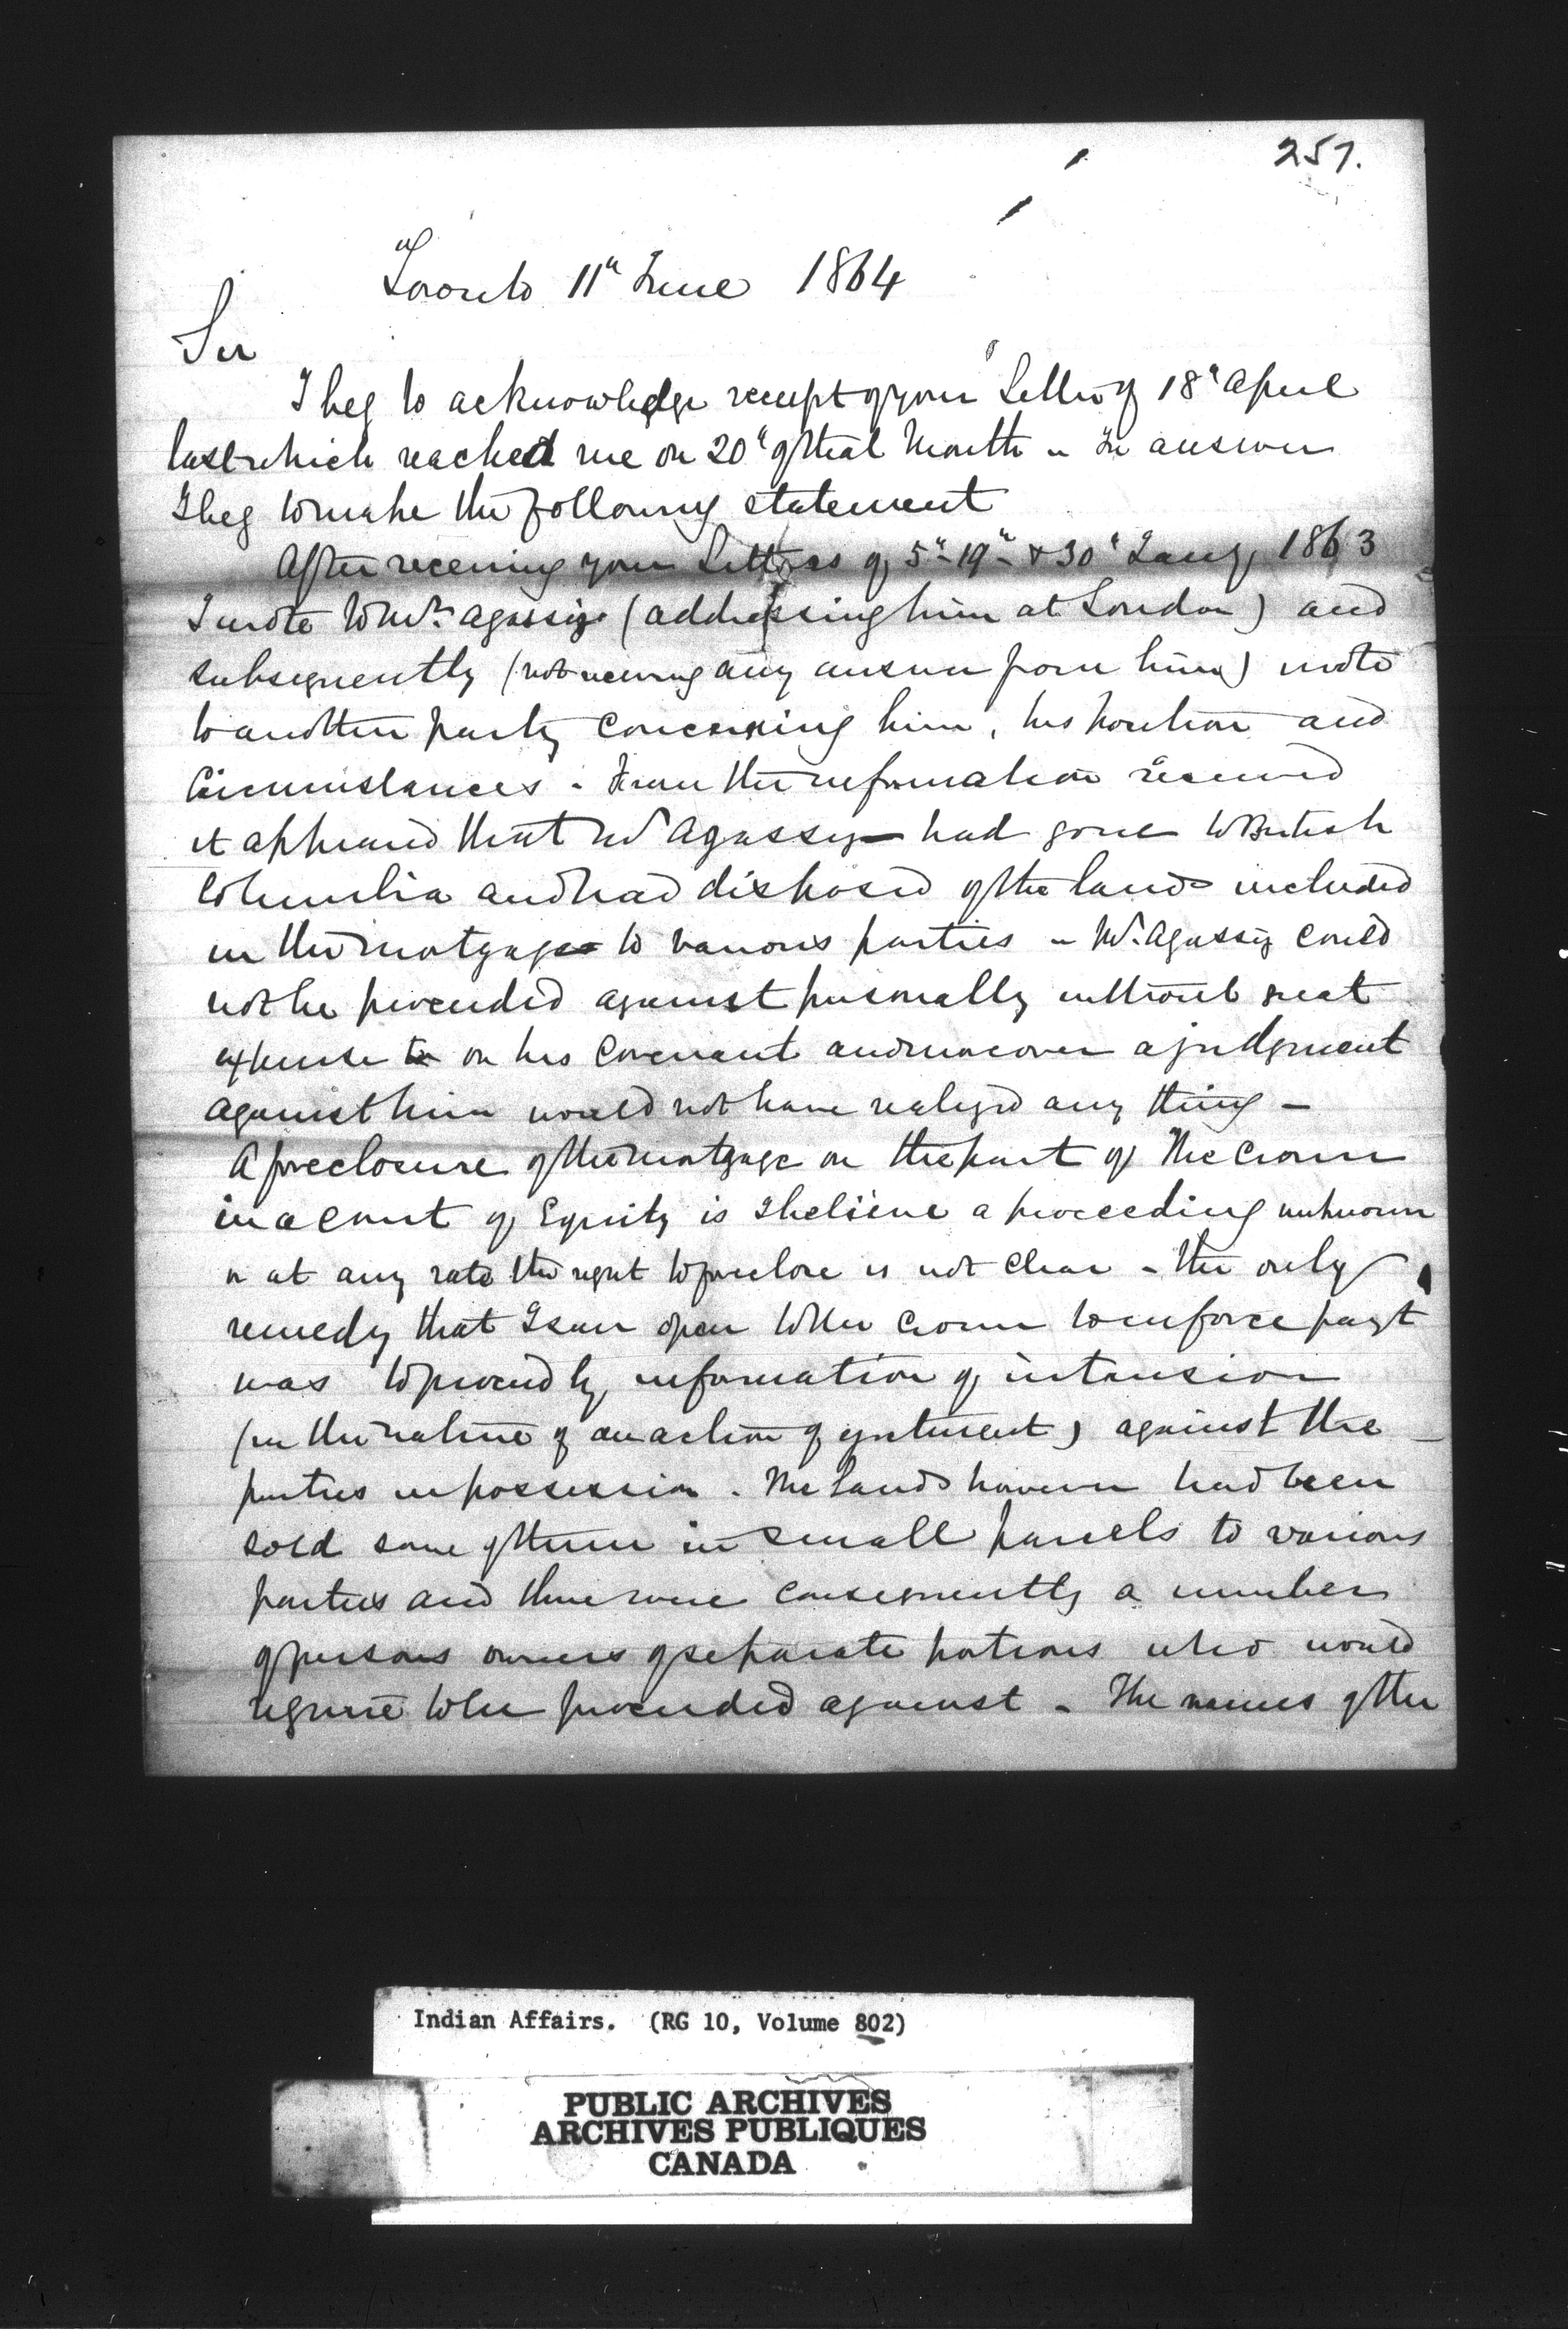 257.
Toronto 11th June 1864
Sir
I beg to acknowledge receipt of your Letter of 18th April
last which reached me on 20th of that Month - In answer
I beg to make the following statement
After receiving your Letters of 5th 19th & 30th Jany 1863
I wrote to Mr. Agassiz (addressing him at London) and
subsequently (not receiving any answer from him) wrote
to another party concerning him, his position and
Circumstances. From the information received
it appeared that Mr Agassiz had gone to British
Columbia and had disposed of the lands included
in the mortgage to various parties - Mr. Agassiz could
not be proceeded against personally without great
expense on his Covenant and moreover a judgment
against him would not have realized any thing -
A foreclosure of the mortgage on the part of The Crown
in a Court of Equity is I believe a proceeding unknown
or at any rate the right to foreclose is not clear - The only
remedy that I saw open to the Crown to enforce payt
was to proceed by information of intrusion
(in the nature of an action of ejectment) against the
parties in possession. The lands however had been
sold some of them in small parcels to various
parties and there were consequently a number
of persons owners of separate portions who would
require to be proceeded against - The names of the
Indian Affairs. (RG 10, Volume 802)
PUBLIC ARCHIVES
ARCHIVES PUBLIQUES
CANADA